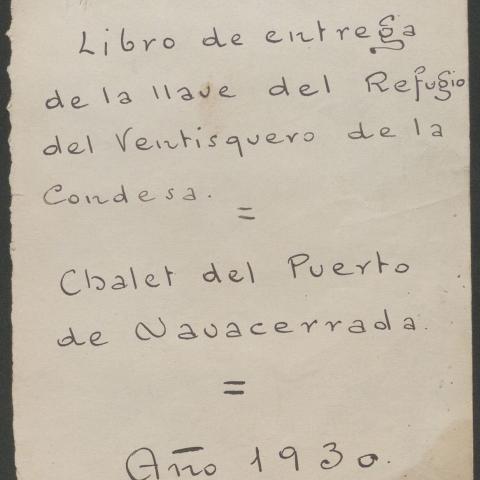 Libro de entrega
de la llave del Refugio
del Ventisquero de la
Condesa.
=
Chalet del Puerto
de Navacerrada.
=
Año 1930.